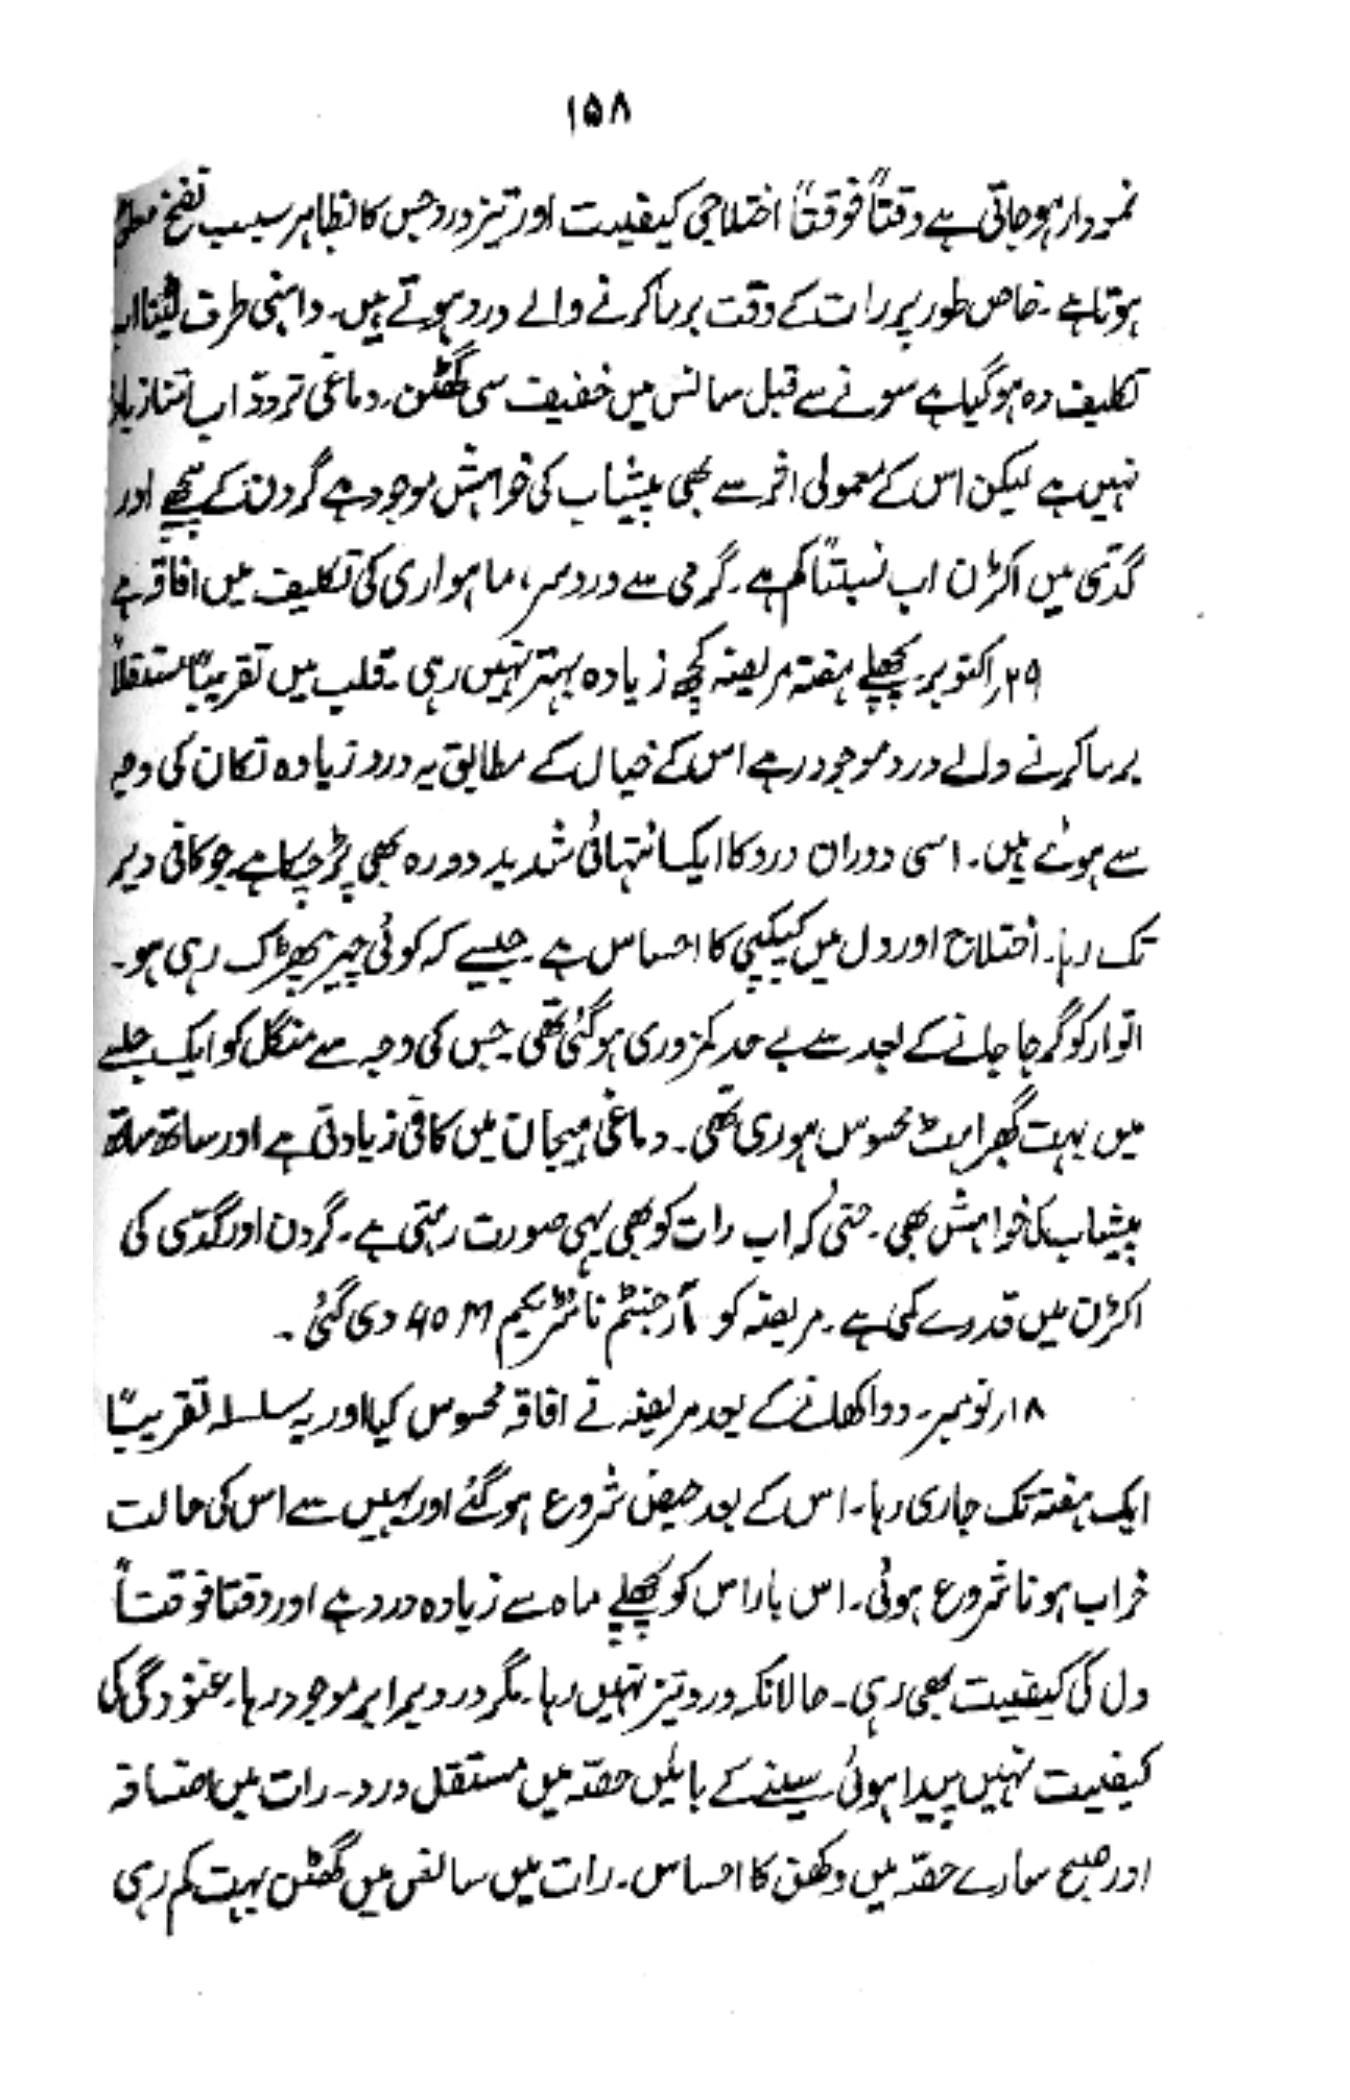 ۱۵۸
نمودار ہو جاتی ہے وقتاً فوقتاً اختلاجی کیفیت اور تیز درد جس کا بظاہر سبب نفخ
ہوتا ہے۔ خاص طور پر رات کے وقت برما کرنے والے درد ہوتے ہیں۔ داہنی طرف لیٹنا اب
تکلیف دہ ہو گیا ہے سونے سے قبل سانس میں خفیف سی گھٹن۔ دماغی تردد اب اتنا زیادہ
نہیں ہے لیکن اس کے معمولی اثر سے بھی پیشاب کی خواہش موجود ہے گردن کے پیچھے اور
گدّی میں اکڑن اب نسبتاً کم ہے۔ گرمی سے درد سر، ماہواری کی تکلیف میں افاقہ ہے
۲۹ر اکتوبر۔ پچھلے ہفتہ مریضہ کچھ زیادہ بہتر نہیں رہی۔ قلب میں تقریباً مستقلاً
برما کرنے والے درد موجود رہے اس کے خیال کے مطابق یہ درد زیادہ تکان کی وجہ
سے ہوئے ہیں۔ اسی دوران درد کا ایک انتہائی شدید دورہ بھی پڑ چکا ہے جو کافی دیر
تک رہا۔ اختلاج اور دل میں کپکپی کا احساس ہے جیسے کہ کوئی چیز پھڑک رہی ہو۔
اتوار کو گرجا جانے کے بعد سے بے حد کمزوری ہو گئی تھی۔ جس کی وجہ سے منگل کو ایک جلسے
میں بہت گھبراہٹ محسوس ہو رہی تھی۔ دماغی ہیجان میں کافی زیادتی ہے اور ساتھ ساتھ
پیشاب کی خواہش بھی۔ حتیٰ کہ اب رات کو بھی یہی صورت رہتی ہے۔ گردن اور گدّی کی
اکڑن میں قدرے کمی ہے۔ مریضہ کو آرجنٹم نائٹریکم 40 M دی گئی۔
۱۸ر نومبر۔ دوا کھانے کے بعد مریضہ نے افاقہ محسوس کیا اور یہ سلسلہ تقریباً
ایک ہفتہ تک جاری رہا۔ اس کے بعد حیض شروع ہو گئے اور یہیں سے اس کی حالت
خراب ہونا شروع ہوئی۔ اس بار اس کو پچھلے ماہ سے زیادہ درد ہے اور وقتا فوقتاً
دل کی کیفیت بھی رہی۔ حالانکہ درد تیز نہیں رہا۔ مگر درد برابر موجود رہا۔ غنودگی کی
کیفیت نہیں پیدا ہوئی سینے کے بائیں حصّہ میں مستقل درد۔ رات میں اضافہ
اور صبح سارے حصّہ میں دکھن کا احساس۔ رات میں سانس میں گھٹن بہت کم رہی